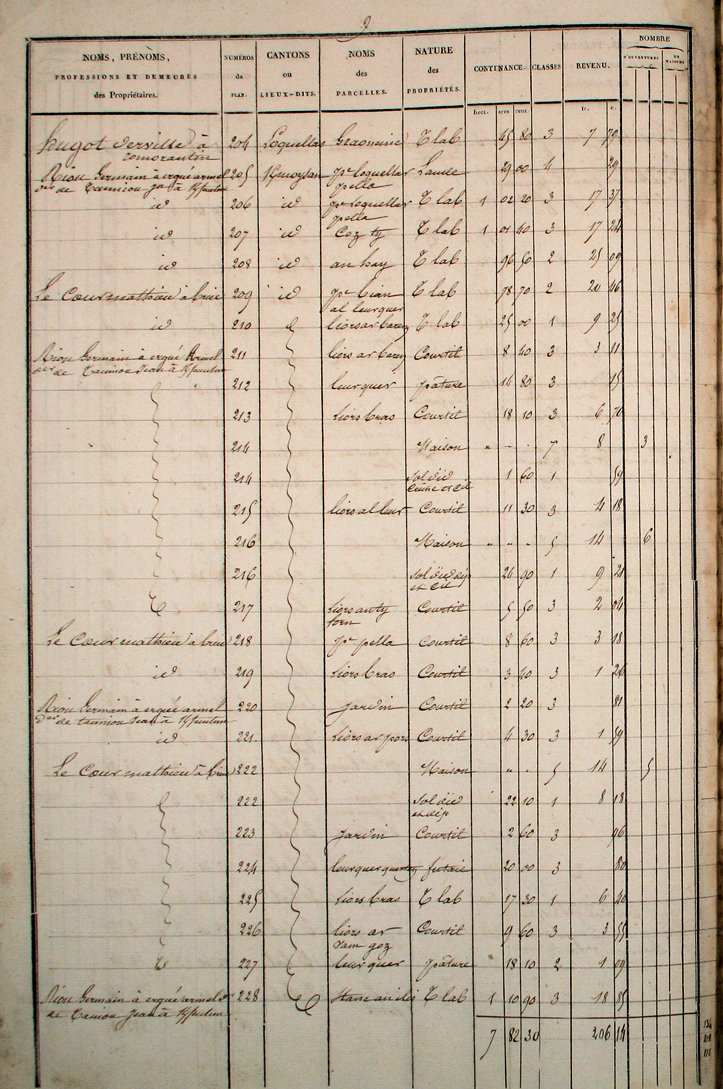 9
NOMS, PRÉNOMS, PROFESSIONS ET DEMEURES des Propriétaires. NUMÉROS du PLAN. CANTONS ou LIEUX-DITS. NOMS des PARCELLES. NATURE des PROPRIÉTÉS. CONTENANCE. CLASSES. REVENU. NOMBRE
D'OUVERTURES DE MAISONS
hect. ares cent. fr. c.
hugot Derville à 204 Loquellas Graonini T lab 45 80 3 7 79
romorantin
Riou Germain à ergué armel 205 pr loquellar Lande 29 00 1 29
der de Tanniou Jn à pella
id 206 id pr loquellar T lab 1 02 20 3 17 37
pella
id 207 id Coz ty T lab 1 01 40 3 17 24
id 208 id an hay T lab 96 50 2 25 09
Le Cœur mathieu à briec 209 id pr bian T lab 78 70 2 20 46
al leurquer
id 210 liorsar T lab 25 00 1 9 25
Riou Germain à ergué Armel 211 liors ar Courtil 8 40 3 3 11
der de Tanniou Jean à
212 leurquer pature 14 80 3 15
213 liors bras Courtil 18 10 3 6 70
214 Maison " - - 7 8 3
214 sol dud 1 60 1 59
215 liors al leur Courtil 11 30 3 4 18
216 Maison " " . 5 14 6
216 sol dud dép 24 90 1 9 21
et
217 liors an ty Courtil 5 50 3 2 04
forn
Le Cœur mathieu à briec 218 pr pella Courtil 8 60 3 3 18
id 219 liors bras Courtil 3 40 3 1 26
Riou Germain à ergué armel 220 jardin Courtil 2 20 3 81
der de tanniou Jean à
id 221 liors ar pors Courtil 4 30 3 1 59
Le Cœur mathieu à briec 222 Maison " . 5 14 5
222 sol dud 22 10 1 8 18
et dép
223 jardin Courtil 2 60 3 96
224 leurquer futaie 20 00 3 80
225 liors bras T lab 17 30 1 6 40
226 liors ar Courtil 9 60 3 3 55
ram goz
227 leurquer pature " 18 10 2 1 09
Riou Germain à ergué armel dr 228 T lab 1 10 90 3 18 85
de Taniou Jean à
7 82 30 206 14